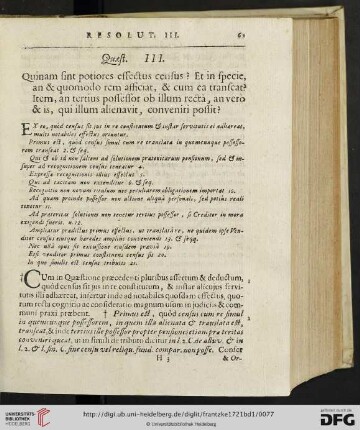 RESOLUT. III. 61
Quæst. III.
Quinam sint potiores effectus census? Et in specie,
an & quomodo rem afficiat, & cum ea transeat?
Item, an tertius possessor ob illum recta, an vero
& is, qui illum alienavit, conveniri possit?
Ex eo, quod census sit jus in re constitutum & instar servitutis ei adhæreat,
multi notabiles effectus oriuntur.
Primus est, quod census simul cum re transeat in quemcunque possesso-
rem transeat 2. & seq.
Qui & ob id non saltem ad solutionem præteritarum pensionum, sed & in-
super ad recognitionem census tenetur 4.
Expressa recognitionis istius effectus 5.
Quæ ad tacitam non extenditur 6. & seq.
Recognitio non novam etiam nec peculiarem obligationem importat 10.
Ad quam proinde possessor non ullam aliquâ personali, sed potius reali
tenetur 11.
Ad præteritas solutiones non tenetur tertius possessor, si Creditor in mora
exigendi fuerit. n. 12.
Ampliatur prædictus primus effectus, ut translatâ re, ne quidem ipse Ven-
ditor census ejusque hæredes amplius conveniendi 13. & seqq.
Nec ullâ opus sit excussione ejusdem prævia 19.
Esse venditor primus constituens census sit 20.
In quo similis est census tributis 21.
Cum in Quæstione præcedenti pluribus assertum & deductum,
quòd census sit jus in re constitutum, & instar alicujus servi-
tutis illi adhæreat, infertur inde ad notabiles quosdam effectus, quo-
rum recta cognitio ac consideratio magnum usum in judiciis & com-
muni praxi præbent. † Primus est, quòd census cum re simul
in quemcunque possessorem, in quem illa alienata & translata est,
transeat, & inde tertius ille possessor propter pensionis etiam præteritas
conveniri queat, ut in simili de tributo dicitur in l. 2. C. de alluv. & in
l. 2. & l. fin. C. sine censu vel reliqu. fund. compar. non posse. Censet
H 3 & Or-
http://digi.ub.uni-heidelberg.de/diglit/frantzke1721bd1/0077
© Universitätsbibliothek Heidelberg
UNIVERSITÄTS-
BIBLIOTHEK
HEIDELBERG
gefördert durch die
DFG